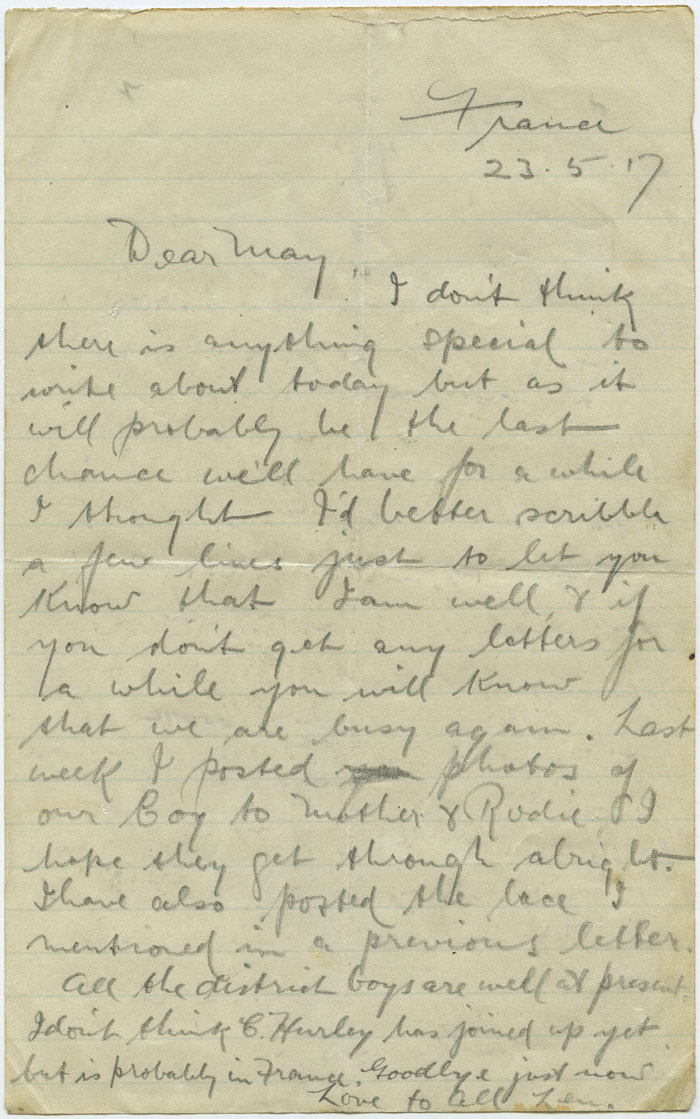 France
23.5.17
Dear May
I don't think
there is anything special to
write about today but as it
will probably be the last
chance we'll have for a while
I thought I'd better scribble
a few lines just to let you
know that I am well & if
you don't get any letters for
a while you will know
that we are busy again. Last
week I posted photos of
our Coy to Mother & Rodie & I
hope they get through alright.
I have also posted the lace I
mentioned in a previous letter.
All the district boys are well at present.
I don't think C. Hurley has joined up yet
but is probably in France. Goodbye just now
Love to all Len.